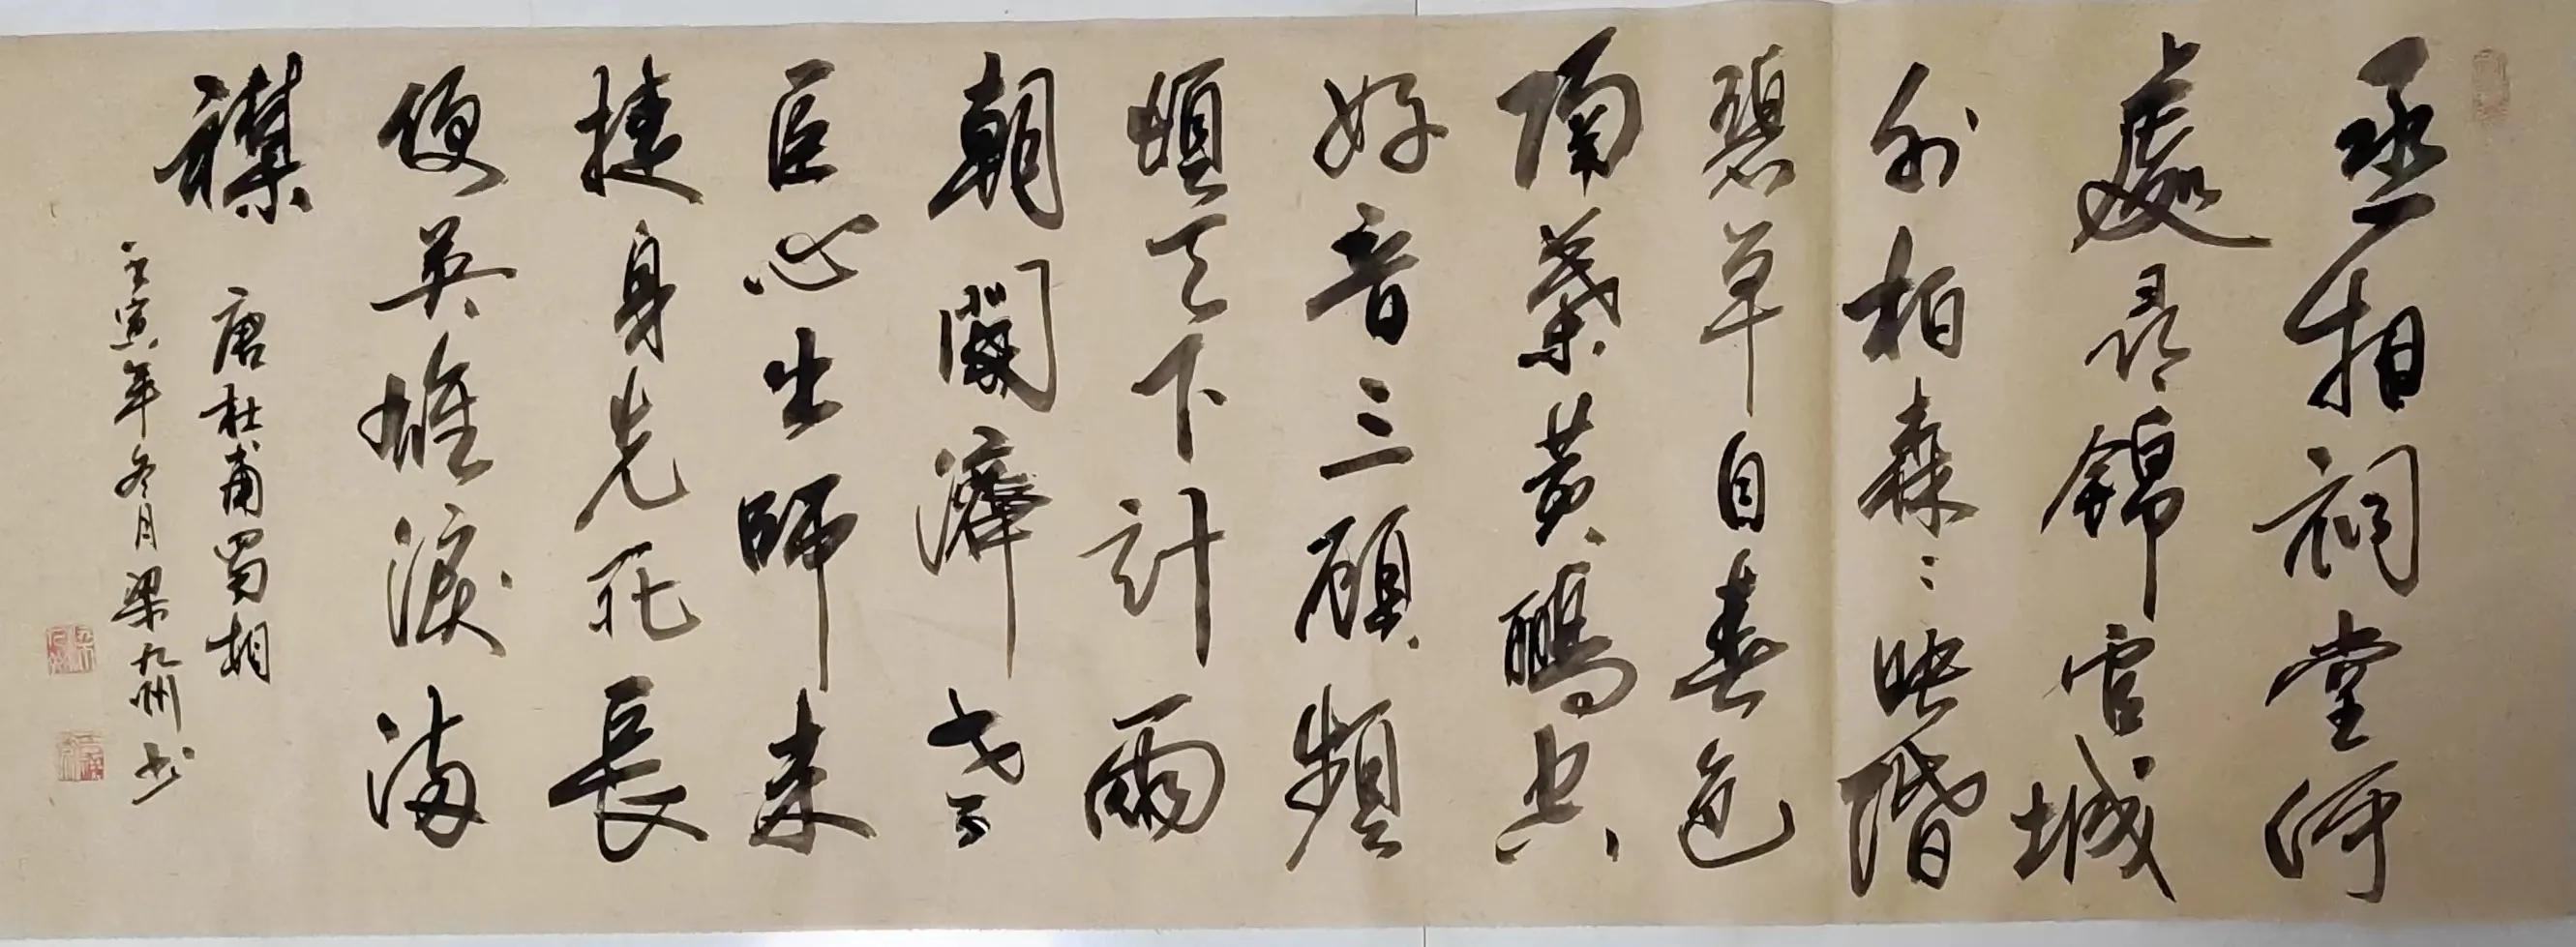 丞相祠堂何
處尋錦官城
外柏森〻映階
碧草自春色
隔葉黃鸝空
好音三顧頻
煩天下計兩
朝開濟老
臣心出師未
捷身先死長
使英雄淚滿
襟
唐杜甫蜀相
壬寅年冬月梁九州书